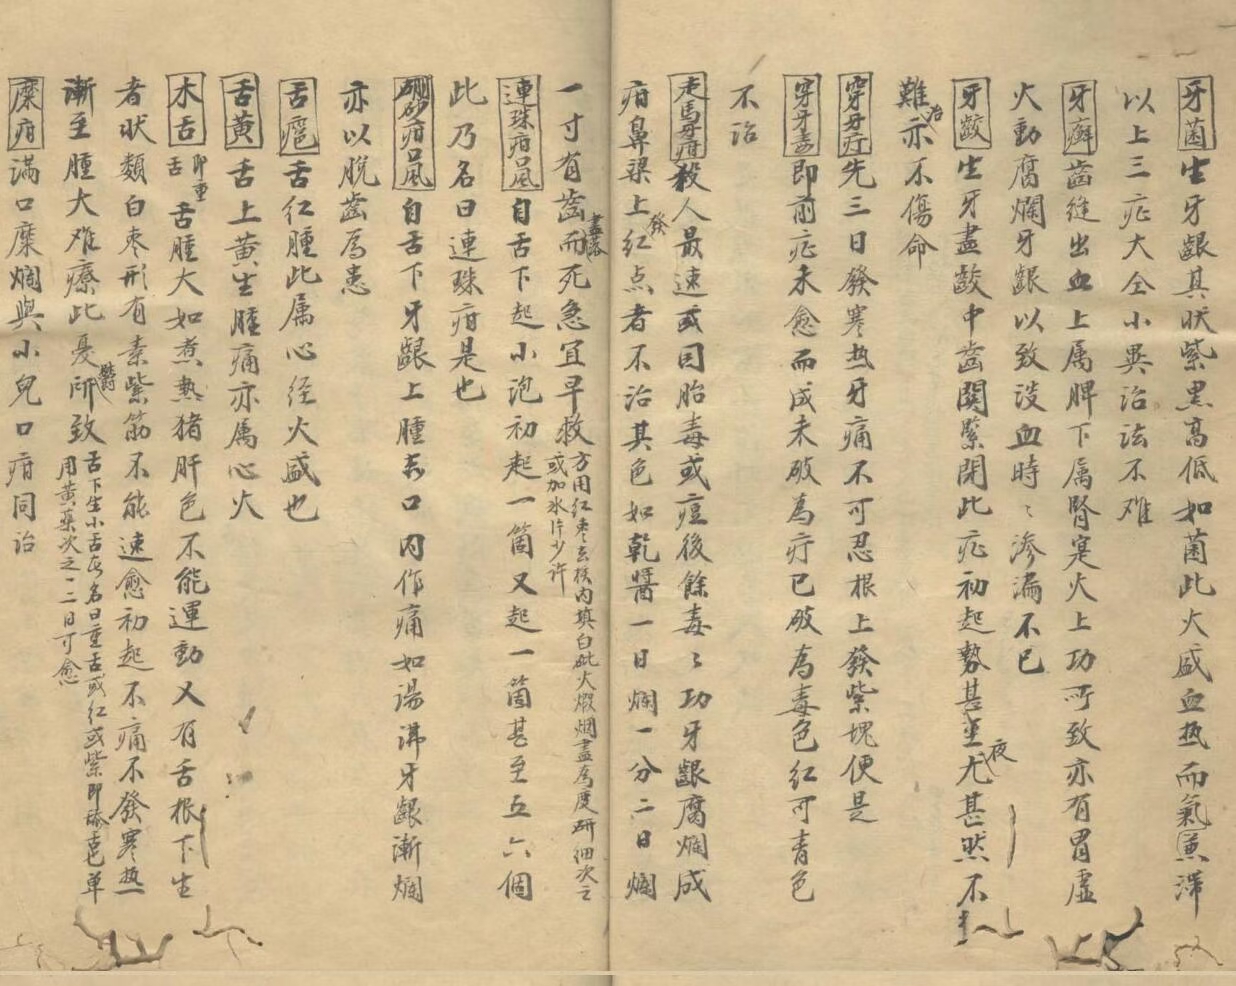 牙菌生牙齦其狀紫黑高低如菌此火盛血热而氣滞
以上三症大仝小異治法不难
牙癬齒縫出血上属脾下属腎寔火上功所致亦有胃虛
火動腐爛牙齦以致淡血時〻滲漏不已
牙齩生牙盡齩中齒関緊閉此症初起勢甚至夜尤甚然不
難治亦不傷命
穿牙疔先三日發寒热牙痛不可忍根上發紫塊便是
穿牙毒即前症未愈而成未破為疔已破為毒色红可青色
不治
走馬牙疳殺人最速或因胎毒或痘後餘毒〻功牙齦腐爛成
疳鼻梁上發红点者不治其色如乾醬一日爛一分二日爛
一寸有齒盡落而死急宜早救方用红枣去核内填白砒火煅烟盡為度研细次之或加氷片少许
連珠疳風自舌下起小泡初起一箇又起一箇甚至五六個
此乃名曰連珠疳是也
硼砂疳風自舌下牙齦上腫赤口内作痛如湯沸牙齦漸爛
亦以脫齒為患
舌瘡舌红腫此属心经火盛也
舌黄舌上黄生腫痛亦属心火
木舌即重舌舌腫大如煮熟猪肝色不能運動又有舌根下生
者状類白枣形有素紫筋不能速愈初起不痛不發寒热
漸至腫大难療此憂鬱所致舌下生小舌者名曰重舌或红或紫即捺古色单用黄藥次之二日可愈
糜疳滿口糜爛與小兒口疳同治